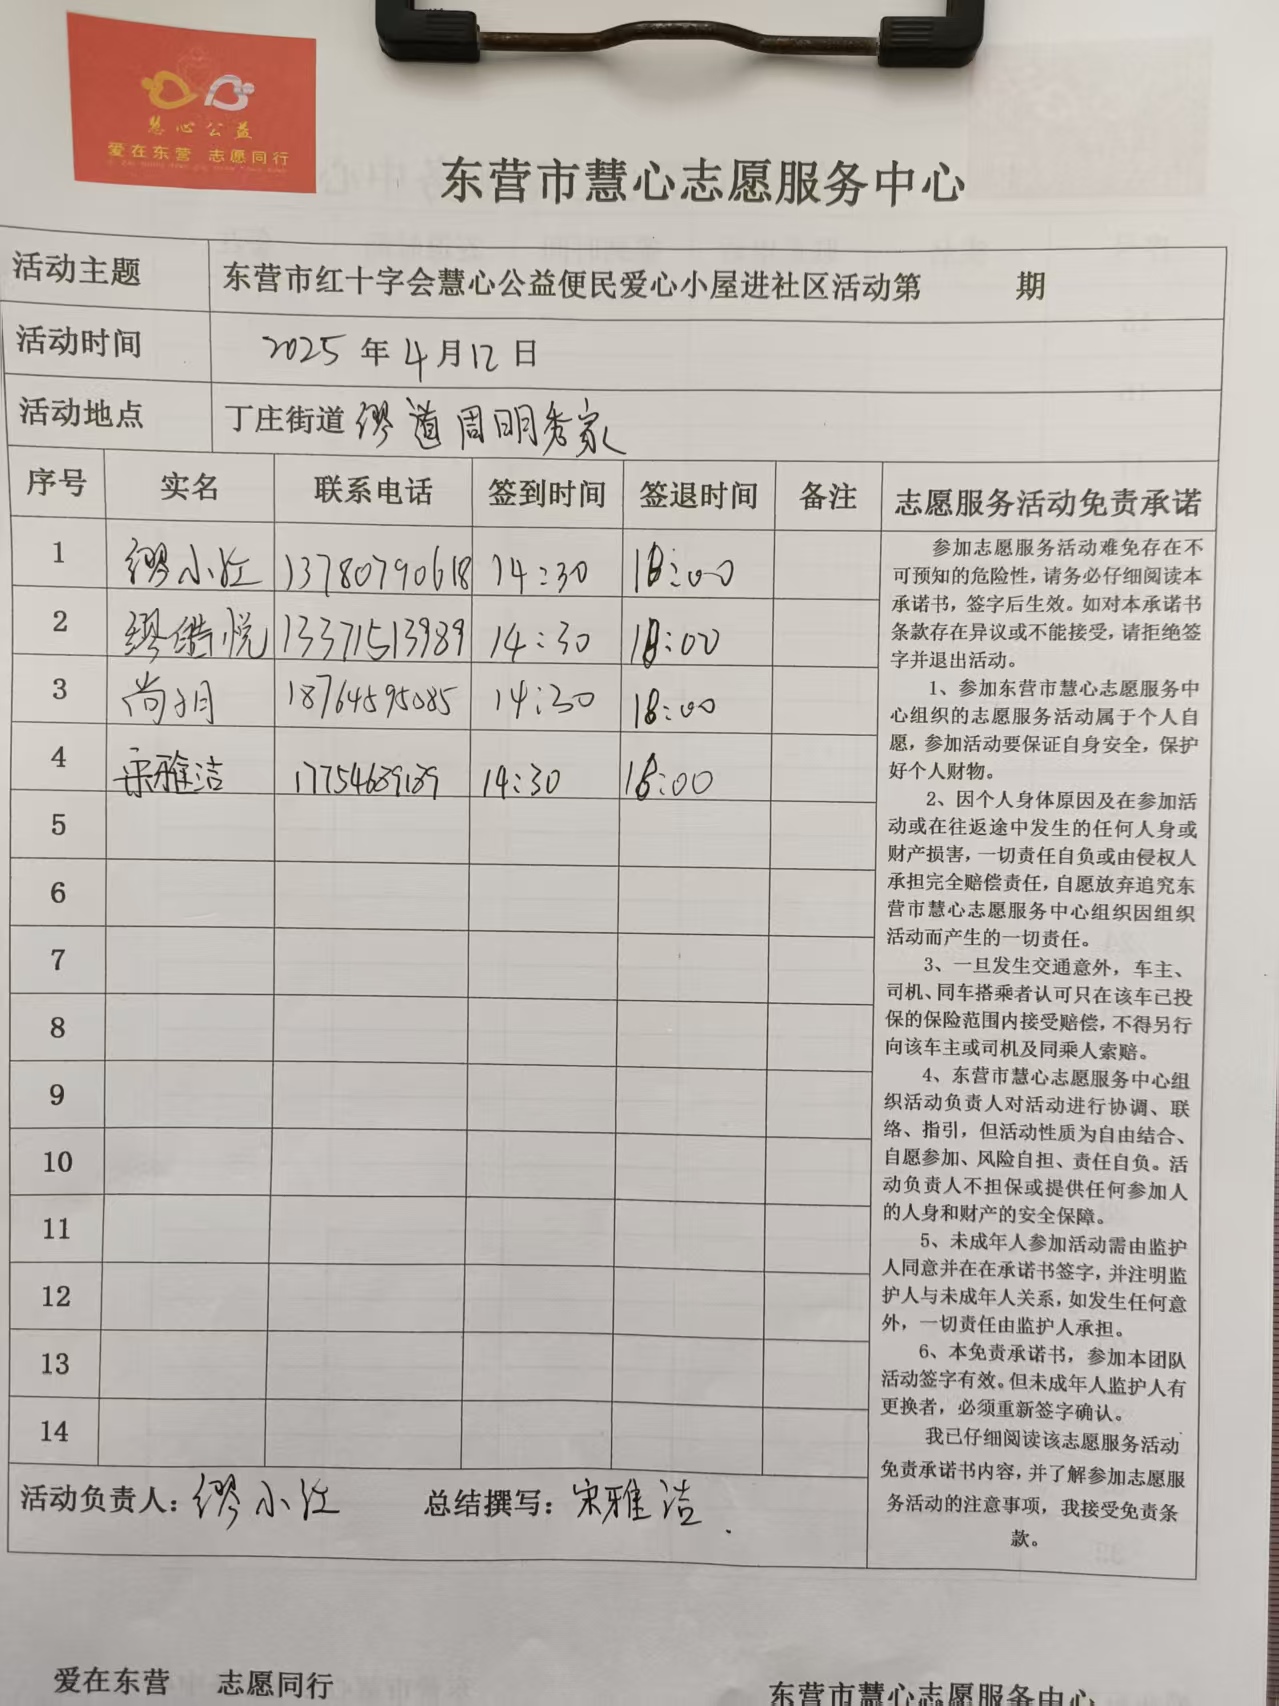 慧心公益
爱在东营 志愿同行
东营市慧心志愿服务中心
活动主题 东营市红十字会慧心公益便民爱心小屋进社区活动第 期
活动时间 2025 年 4 月 12 日
活动地点 丁庄街道 缪道周明秀家
序号 实名 联系电话 签到时间 签退时间 备注 志愿服务活动免责承诺
1 缪小红 13780790618 14:30 18:00
2 缪 悦 13371513989 14:30 18:00
3 尚 月 18764595085 14:30 18:00
4 宋雅洁 14:30 18:00
5
6
7
8
9
10
11
12
13
14
参加志愿服务活动难免存在不
可预知的危险性，请务必仔细阅读本
承诺书，签字后生效。如对本承诺书
条款存在异议或不能接受，请拒绝签
字并退出活动。
1、参加东营市慧心志愿服务中
心组织的志愿服务活动属于个人自
愿，参加活动要保证自身安全，保护
好个人财物。
2、因个人身体原因及在参加活
动或在往返途中发生的任何人身或
财产损害，一切责任自负或由侵权人
承担完全赔偿责任，自愿放弃追究东
营市慧心志愿服务中心组织因组织
活动而产生的一切责任。
3、一旦发生交通意外，车主、
司机、同车搭乘者认可只在该车已投
保的保险范围内接受赔偿，不得另行
向该车主或司机及同乘人索赔。
4、东营市慧心志愿服务中心组
织活动负责人对活动进行协调、联
络、指引，但活动性质为自由结合、
自愿参加、风险自担、责任自负。活
动负责人不担保或提供任何参加人
的人身和财产的安全保障。
5、未成年人参加活动需由监护
人同意并在在承诺书签字，并注明监
护人与未成年人关系，如发生任何意
外，一切责任由监护人承担。
6、本免责承诺书，参加本团队
活动签字有效。但未成年人监护人有
更换者，必须重新签字确认。
我已仔细阅读该志愿服务活动
免责承诺书内容，并了解参加志愿服
务活动的注意事项，我接受免责条
款。
活动负责人：缪小红 总结撰写：宋雅洁.
爱在东营 志愿同行
东营市慧心志愿服务中心